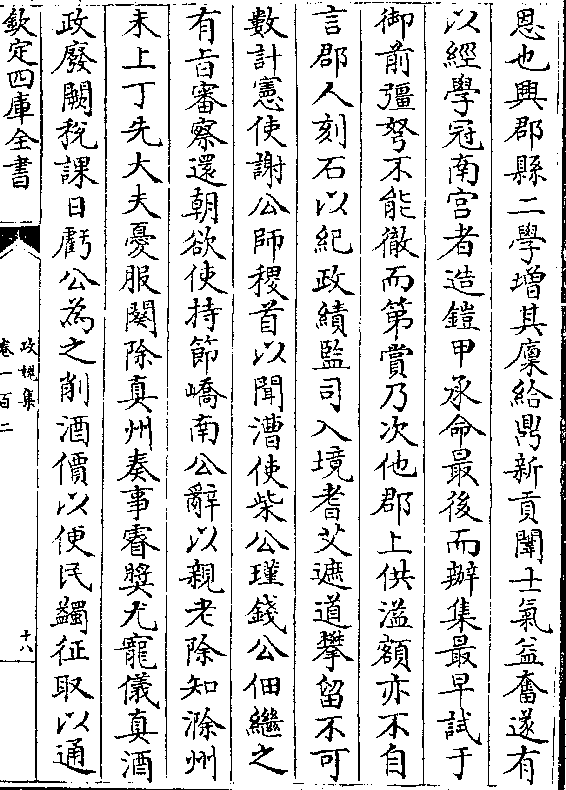 恩也興郡縣二學增其廩給鼎新貢闈士氣益奮遂有
以經學冠南宫者造鎧甲承命最後而辦集最早試于
御前彊弩不能徹而第賞乃次他郡上供溢額亦不自
言郡人刻石以紀政績監司入境耆艾遮道攀留不可
數計憲使謝公師稷首以聞漕使柴公瑾錢公佃繼之
有旨審察還朝欲使持節嶠南公辭以親老除知滁州
未上丁先大夫憂服闋除真州奏事睿奬尤寵儀真酒
政廢闕稅課日虧公為之削酒價以便民蠲征取以通
欽定四庫全書
攻媿集
卷一百二
十八